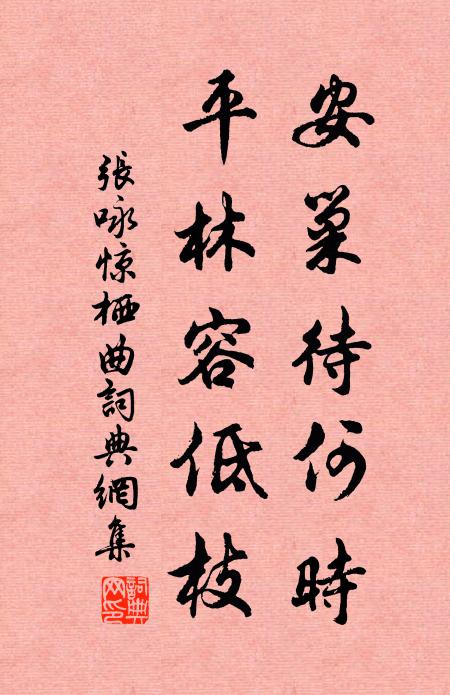 安巢待何時
平林容低枝
張咏惊栖曲詞典網集
詞典網印